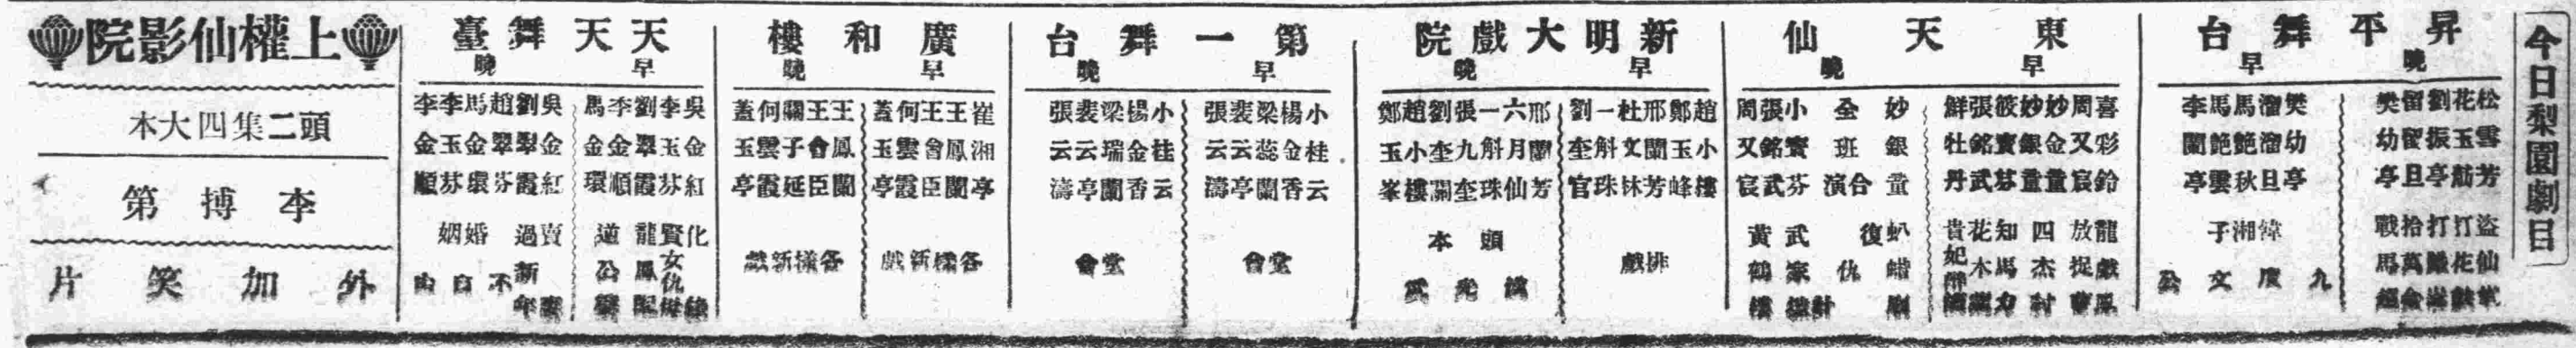 今日梨園劇目
昇平舞台
晚
松雪芳
花玉舫
劉振亭
留留旦
樊幼亭
盜仙草
打花鼓
拾萬金
戰馬超
早
樊幼亭
溜溜旦
馬艶秋
馬艶雲
李蘭亭
韓湘子
九度文公
東天仙
早
喜彩鈴
周又宸
妙金童
妙銀童
筱寶芬
張銘武
鮮牡丹
龍戲鳳
放捉曹
四杰村
知馬力
花木蘭
貴妃醉酒
晚
妙銀童
全班合演
小寶芬
張銘武
周又宸
虮蜡廟
復仇計
武家坡
黃鶴樓
新明大戲院
早
趙小樓
鄭玉峰
邢蘭芳
杜文林
一斛珠
劉奎官
排戲
晚
邢蘭芳
六月仙
一斛珠
張九奎
劉奎關
趙小樓
鄭玉峯
頭本
漢光武
第一舞台
早
小桂云
楊金香
梁蕊蘭
裴云亭
張云濤
堂會
晚
小桂云
楊金香
梁瑞蘭
裴云亭
張云濤
堂會
廣和樓
早
崔湘亭
王鳳蘭
王會臣
何雲霞
蓋玉亭
各樣新戲
晚
王鳳蘭
王會臣
關子延
何雲霞
蓋玉亭
各樣新戲
天天舞臺
早
吳金紅
李玉芬
劉翠霞
李金順
馬金環
龍鳳配
晚
吳金紅
劉翠霞
趙翠芬
馬金環
李玉芬
李金順
賣過新年
婚姻不自由
上權仙影院
頭二集四大本
李搏第
外加笑片